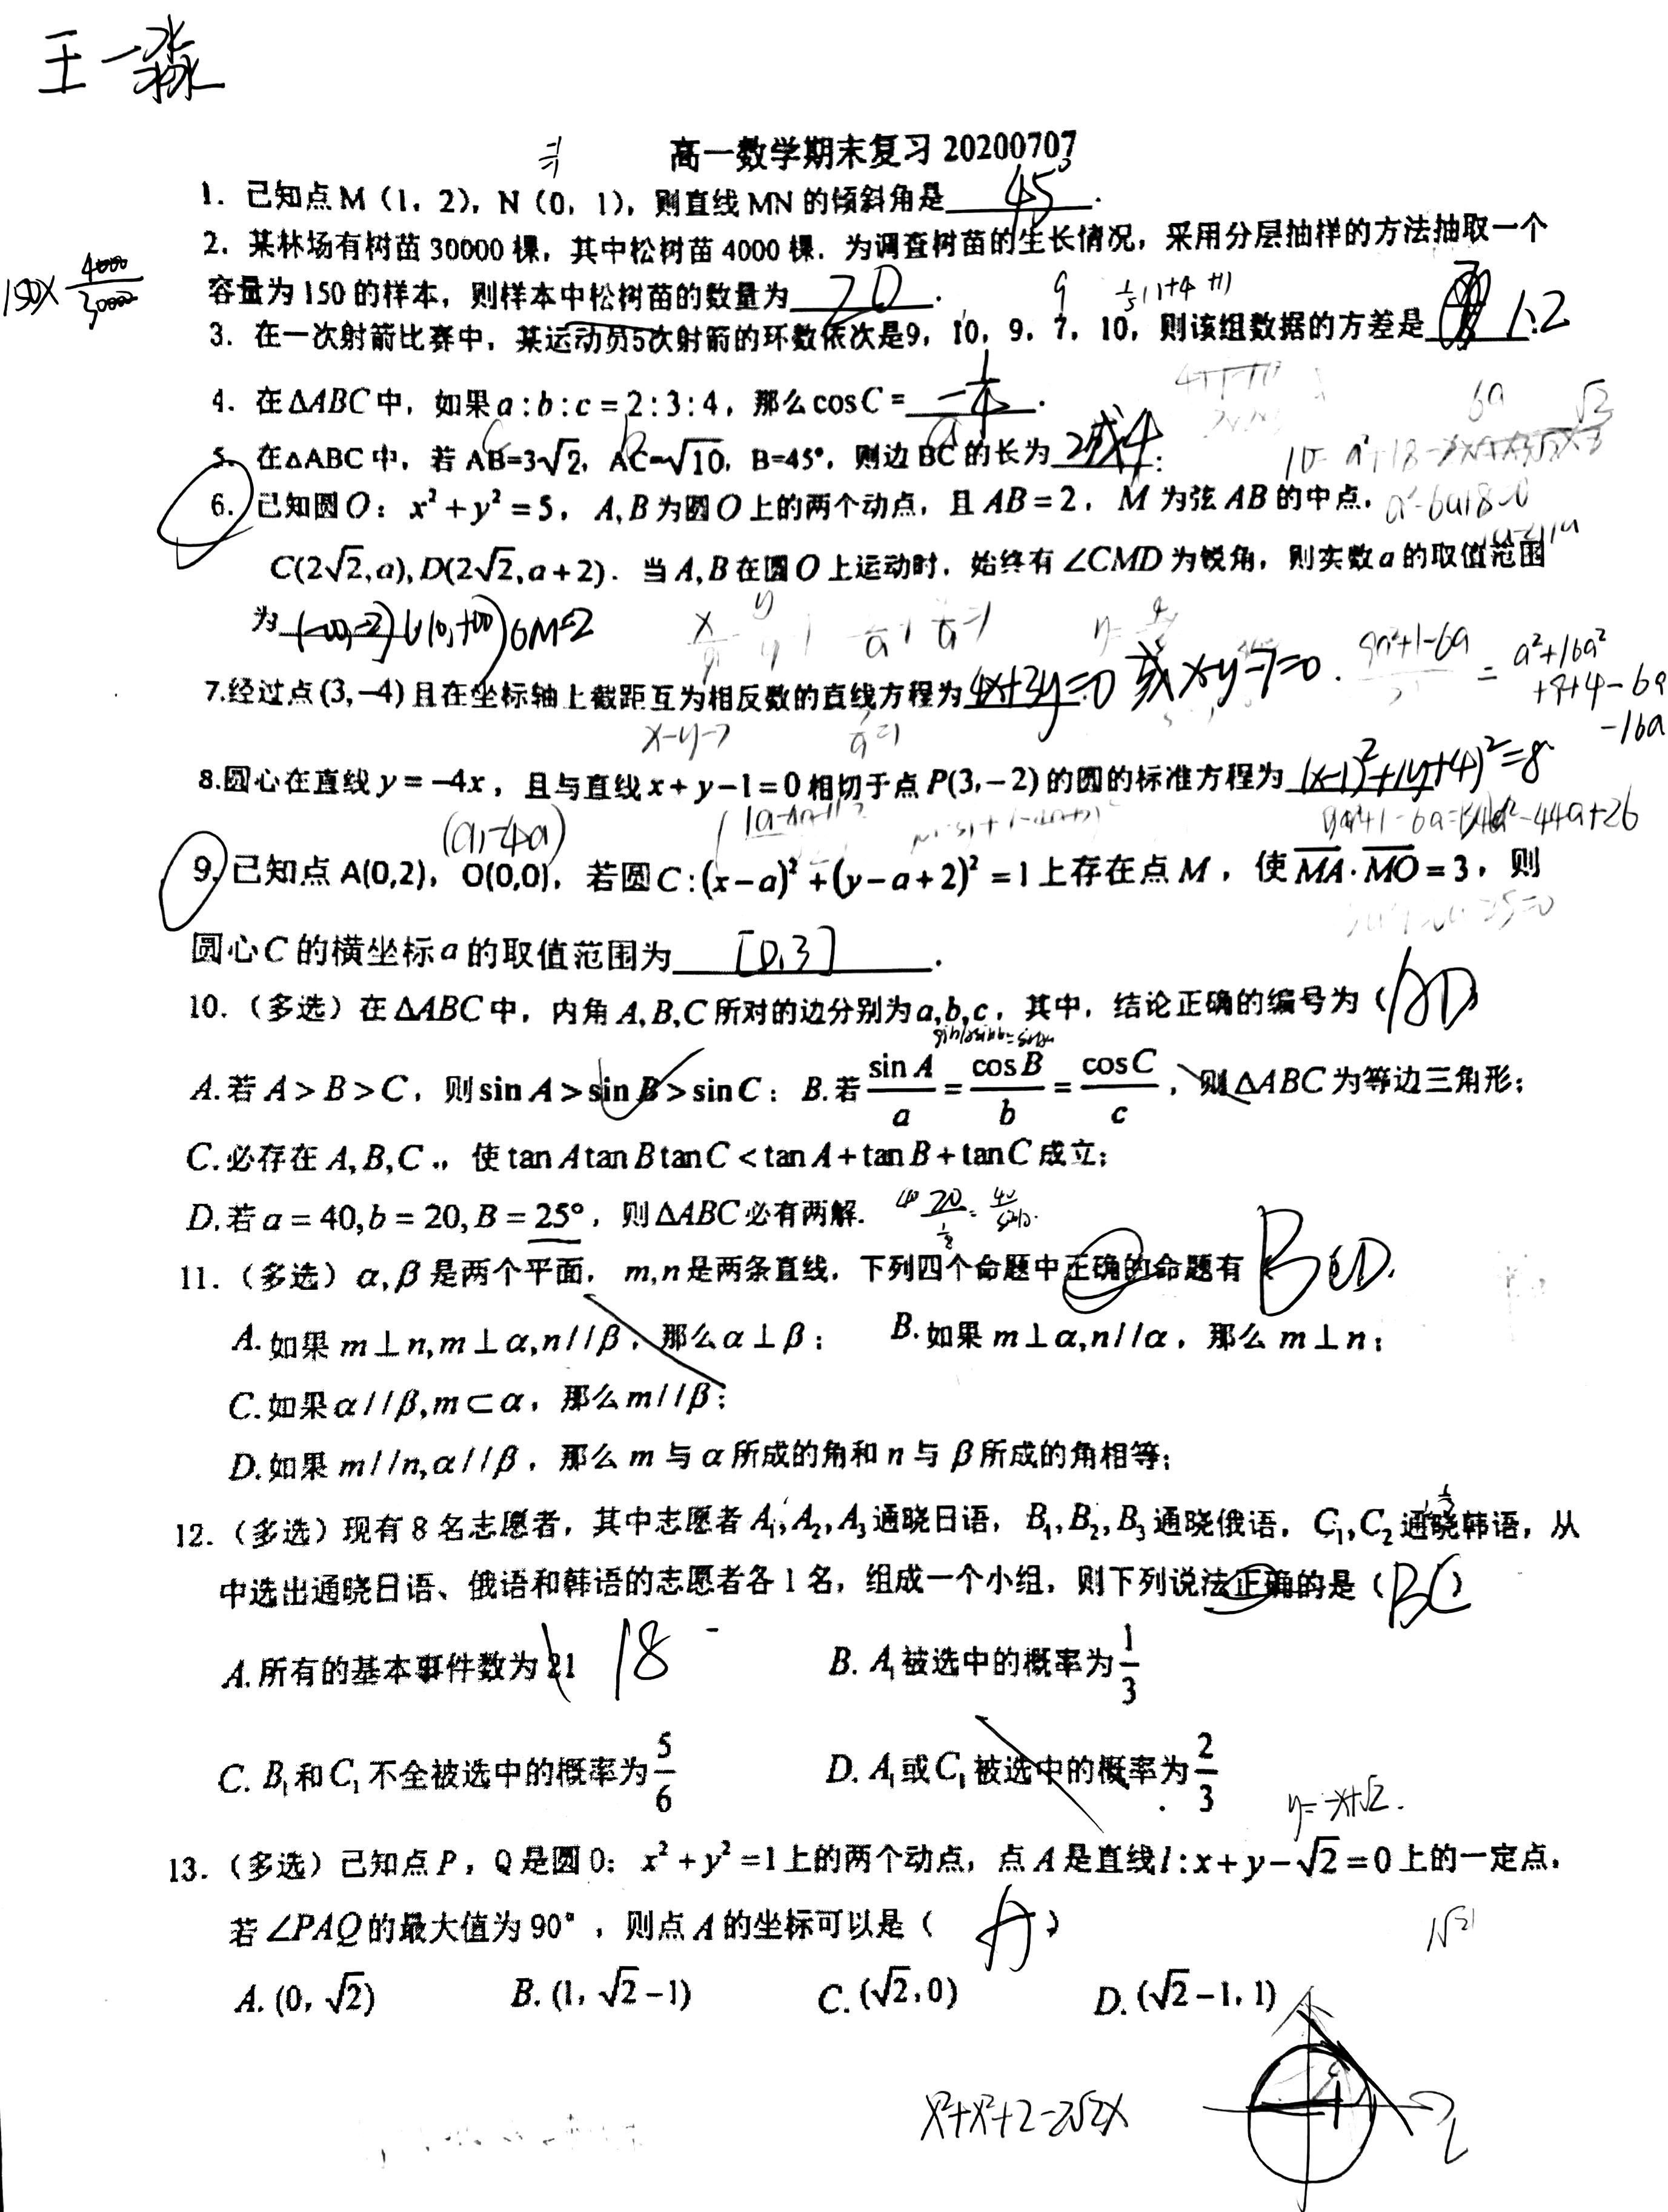 王一淼
高一数学期末复习 20200707
1. 已知点 M（1，2），N（0，1），则直线 MN 的倾斜角是 45° .
2. 某林场有树苗 30000 棵，其中松树苗 4000 棵．为调查树苗的生长情况，采用分层抽样的方法抽取一个
150× 4000/30000
容量为 150 的样本，则样本中松树苗的数量为 20 .
9 1/5(1+4+1)
3. 在一次射箭比赛中，某运动员5次射箭的环数依次是9，10，9，7，10，则该组数据的方差是 1.2
4. 在ΔABC中，如果a:b:c=2:3:4，那么cosC= -1/4 .
5. 在△ABC 中，若 AB=3√2，AC=√10，B=45°，则边 BC 的长为 2或4 .
6. 已知圆O：x²+y²=5，A,B为圆O上的两个动点，且AB=2，M 为弦AB的中点，
a²-6a+8=0
C(2√2,a),D(2√2,a+2)．当A,B在圆O上运动时，始终有∠CMD为锐角，则实数a的取值范围
为 (-∞,-2)∪(0,+∞) OM=2
7.经过点(3,−4)且在坐标轴上截距互为相反数的直线方程为 4x+3y=0 或 x-y-7=0 .
9a²+1-6a = a²+16a²+9+4-6a-16a
x-y-7
8.圆心在直线y=−4x，且与直线x+y−1=0相切于点P(3,−2)的圆的标准方程为 (x-1)²+(y+4)²=8
(a,-4a)
9. 已知点 A(0,2)，O(0,0)，若圆C:(x−a)²+(y−a+2)²=1上存在点M，使MA·MO=3，则
圆心C的横坐标a的取值范围为 [0,3] .
10.（多选）在ΔABC中，内角A,B,C所对的边分别为a,b,c，其中，结论正确的编号为（AD）
A.若A>B>C，则sin A>sin B>sinC；B.若 sin A/a = cos B/b = cos C/c，则ΔABC为等边三角形；
C.必存在A,B,C，使tan Atan BtanC<tan A+tan B+tanC成立；
D.若a=40,b=20,B=25°，则ΔABC必有两解．
11.（多选）α,β是两个平面，m,n是两条直线，下列四个命题中正确的命题有 BCD.
A.如果m⊥n,m⊥α,n//β，那么α⊥β； B.如果m⊥α,n//α，那么m⊥n；
C.如果α//β,m⊂α，那么m//β；
D.如果m//n,α//β，那么m与α所成的角和n与β所成的角相等；
12.（多选）现有8名志愿者，其中志愿者A₁,A₂,A₃通晓日语，B₁,B₂,B₃通晓俄语，C₁,C₂通晓韩语，从
中选出通晓日语、俄语和韩语的志愿者各1名，组成一个小组，则下列说法正确的是（BC）
A.所有的基本事件数为21 18 B. A₁被选中的概率为1/3
C. B₁和C₁不全被选中的概率为5/6 D. A₁或C₁被选中的概率为2/3
y=-x+√2.
13.（多选）已知点P，Q是圆O：x²+y²=1上的两个动点，点A是直线l:x+y−√2=0上的一定点，
若∠PAQ的最大值为90°，则点A的坐标可以是（ A ）
A. (0，√2) B. (1，√2−1) C. (√2,0) D. (√2−1，1)
x²+x²+2-2√2x